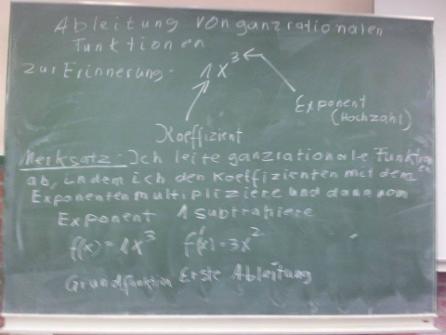 Ableitung von ganzrationalen
Funktionen
Zur Erinnerung: 1x³
Exponent
(Hochzahl)
Koeffizient
Merksatz: Ich leite ganzrationale Funktionen
ab, indem ich den Koeffizienten mit dem
Exponenten multipliziere und dann vom
Exponent 1 subtrahiere
f(x)=1x³ f'(x)=3x²
Grundfunktion Erste Ableitung